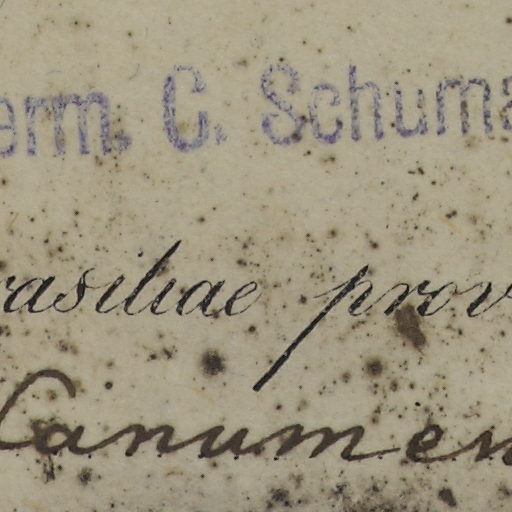 erm. C. Schuma
rasiliae prov
Canumen